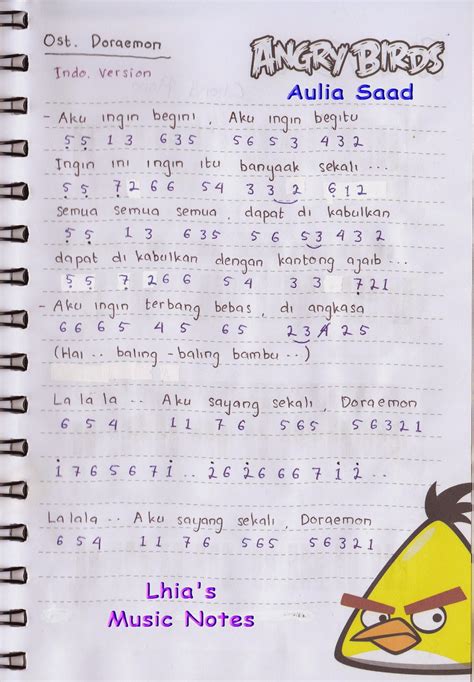 Ost. Doraemon
ANGRY BIRDS
Indo. Version
Aulia Saad
- Aku ingin begini, Aku ingin begitu
5̣ 5̣ 1 3 6 3 5 5 6 5 3 4 3 2
Ingin ini ingin itu banyaak sekali ...
5̣ 5̣ 7̣ 2 6 6 5 4 3 3 2 6̣ 1 2
semua semua semua, dapat di kabulkan
5̣ 5̣ 1 3 6 3 5 5 6 5 3 4 3 2
dapat di kabulkan dengan kantong ajaib ...
5̣ 5̣ 7̣ 2 6 6 5 4 3 3 7̣ 2 1
- Aku ingin terbang bebas, di angkasa
6 6 6 5 4 5 6 5 2 3 # 2 5
(Hai .. baling-baling bambu..)
La la la .. Aku sayang sekali, Doraemon
6 5 4 1 1 7 6 5 6 5 5 6 3 2 1
i 7 6 5 6 7 i .. 2̇ 6 2̇ 6 6 6 7 i 2̇ ..
La la la .. Aku sayang sekali, Doraemon
6 5 4 1 1 7 6 5 6 5 5 6 3 2 1
Lhia's
Music Notes